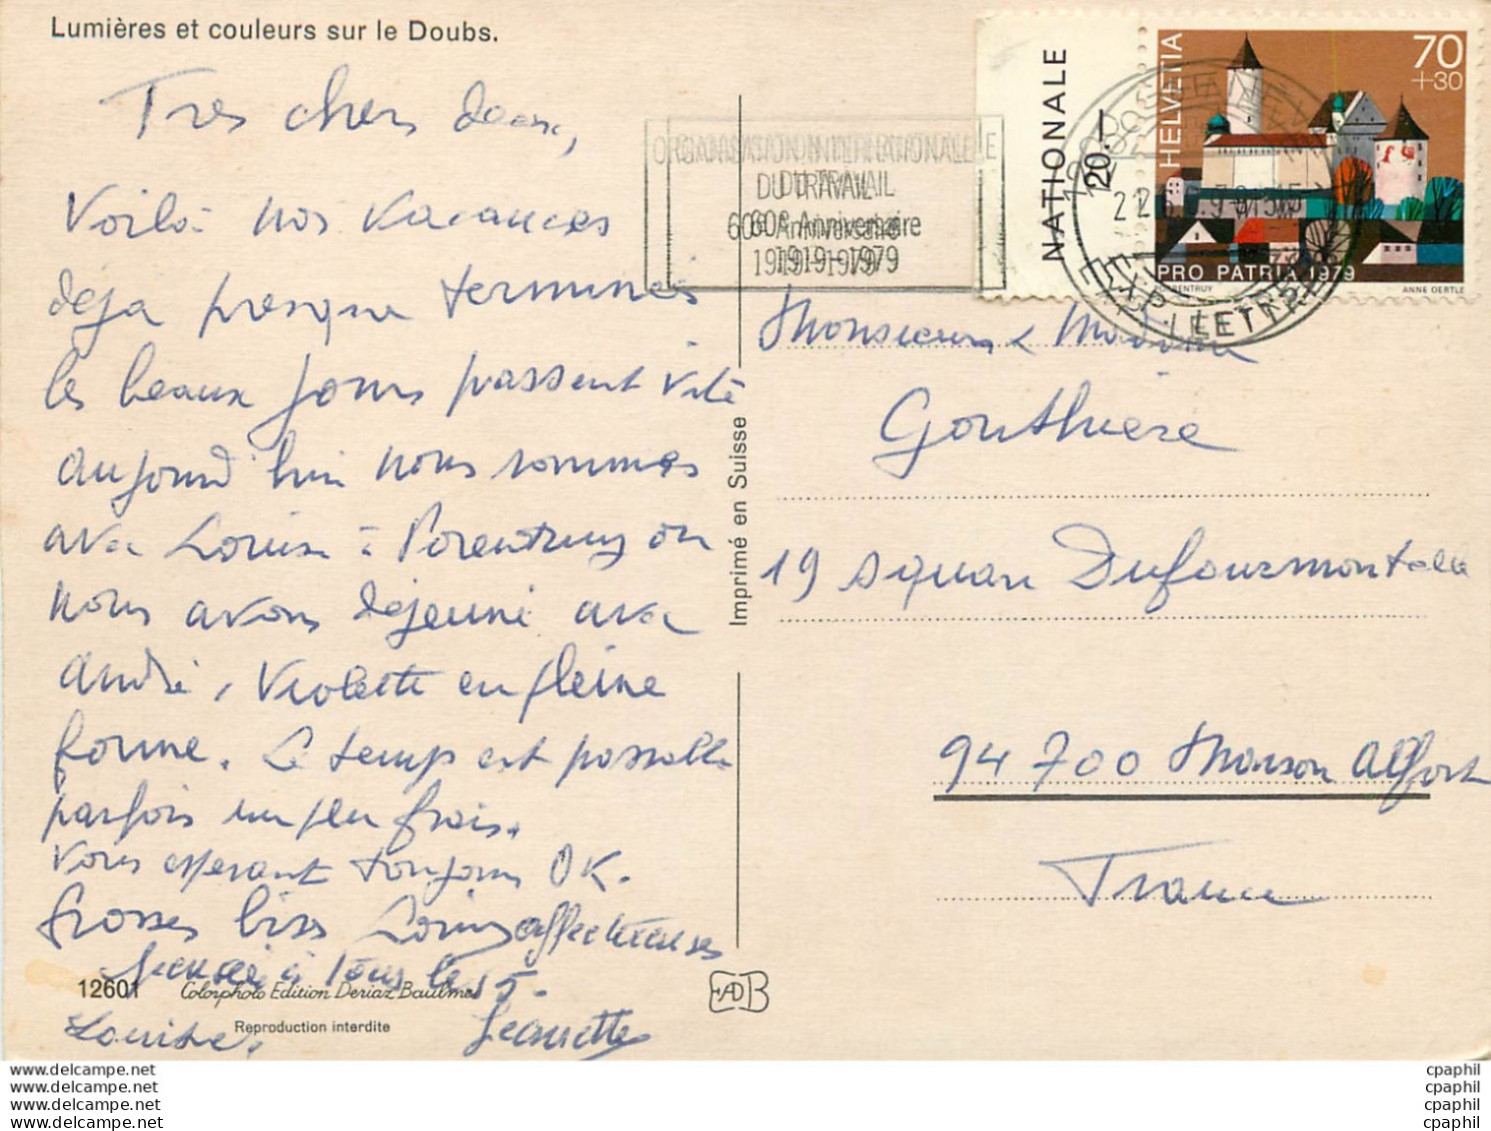 Lumières et couleurs sur le Doubs.
Tres chers deux,
Voilà nos vacances
déja presque terminés
les beaux jours passent vite
aujourd'hui nous sommes
avec Louise à Porentruy ou
nous avons déjeuné avec
André, Violette en pleine
forme. Le temps est passable
parfois un peu frais.
Vous esperant toujours OK.
Grosses bises affectueuses
à tous les 5.
Louise. Jeanette
12601 Colorphoto Edition Deriaz Baulmes
Reproduction interdite
Imprimé en Suisse
EADB
ORGANISATION INTERNATIONALE
DU TRAVAIL
60e Anniversaire
1919-1979
NATIONALE
20.—
HELVETIA
70
+30
PRO PATRIA 1979
PORENTRUY ANNE OERTLE
EXP. LETTRES
Monsieur & Madame
Gouthière
19 square Dufourmontelle
94700 Maison Alfort
France
www.delcampe.net
www.delcampe.net
www.delcampe.net
www.delcampe.net
cpaphil
cpaphil
cpaphil
cpaphil